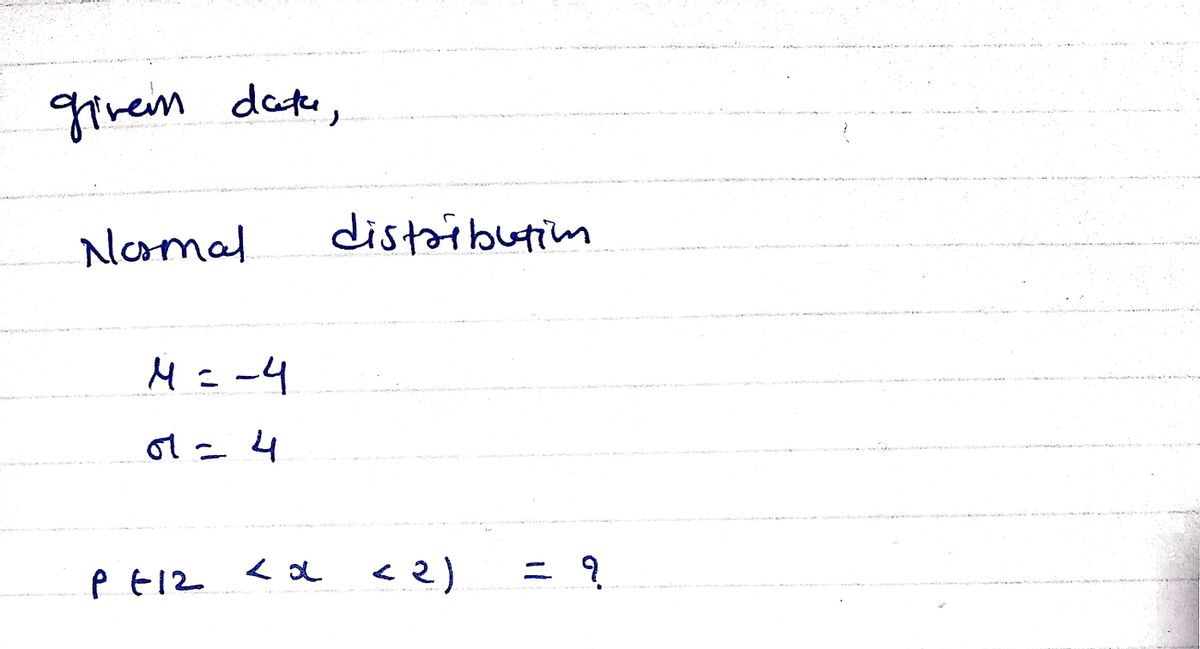 given data,
Normal distribution
μ = -4
σ = 4
P(-12 < x < 2) = ?